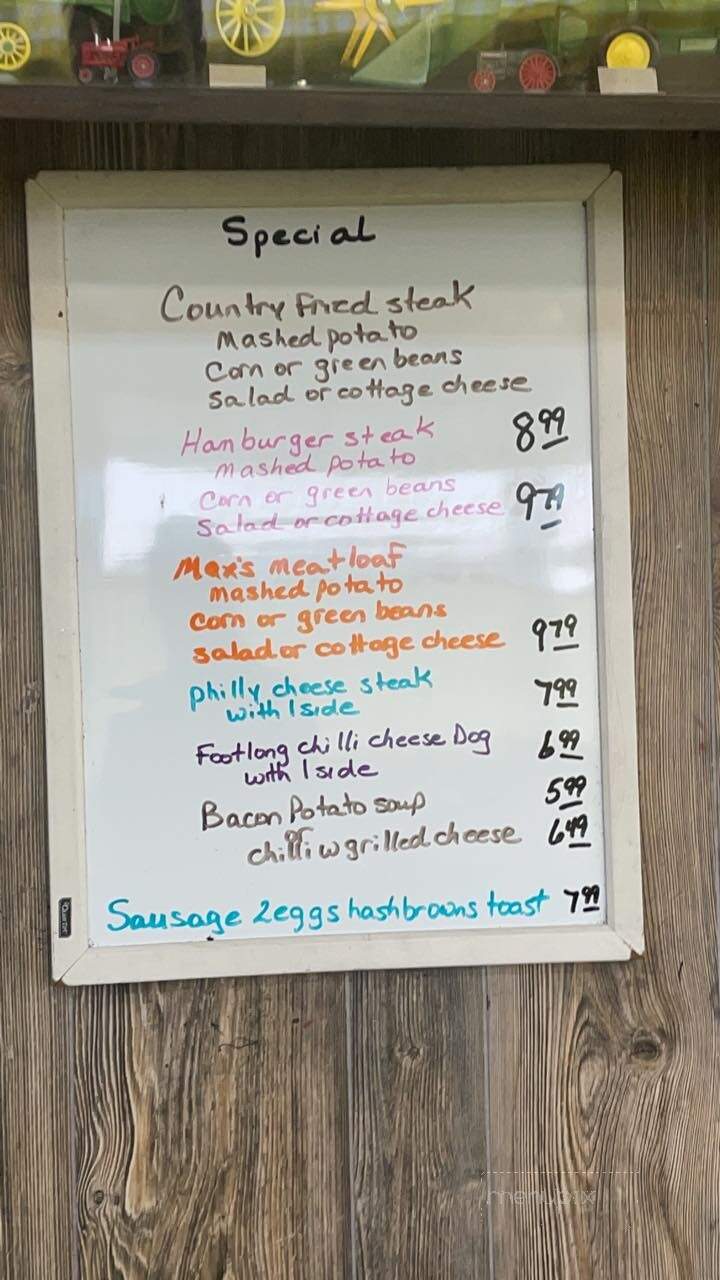 Special
Country Fried steak
Mashed potato
Corn or green beans
Salad or cottage cheese
8.99
Hamburger steak
mashed potato
Corn or green beans
Salad or cottage cheese 9.79
Max's meatloaf
mashed potato
corn or green beans
salad or cottage cheese 9.79
philly cheese steak 7.99
with 1 side
Footlong chilli cheese Dog 6.99
with 1 side
Bacon Potato soup 5.99
or
chilli w grilled cheese 6.49
Sausage 2 eggs hashbrowns toast 7.99
Quartet
menupix